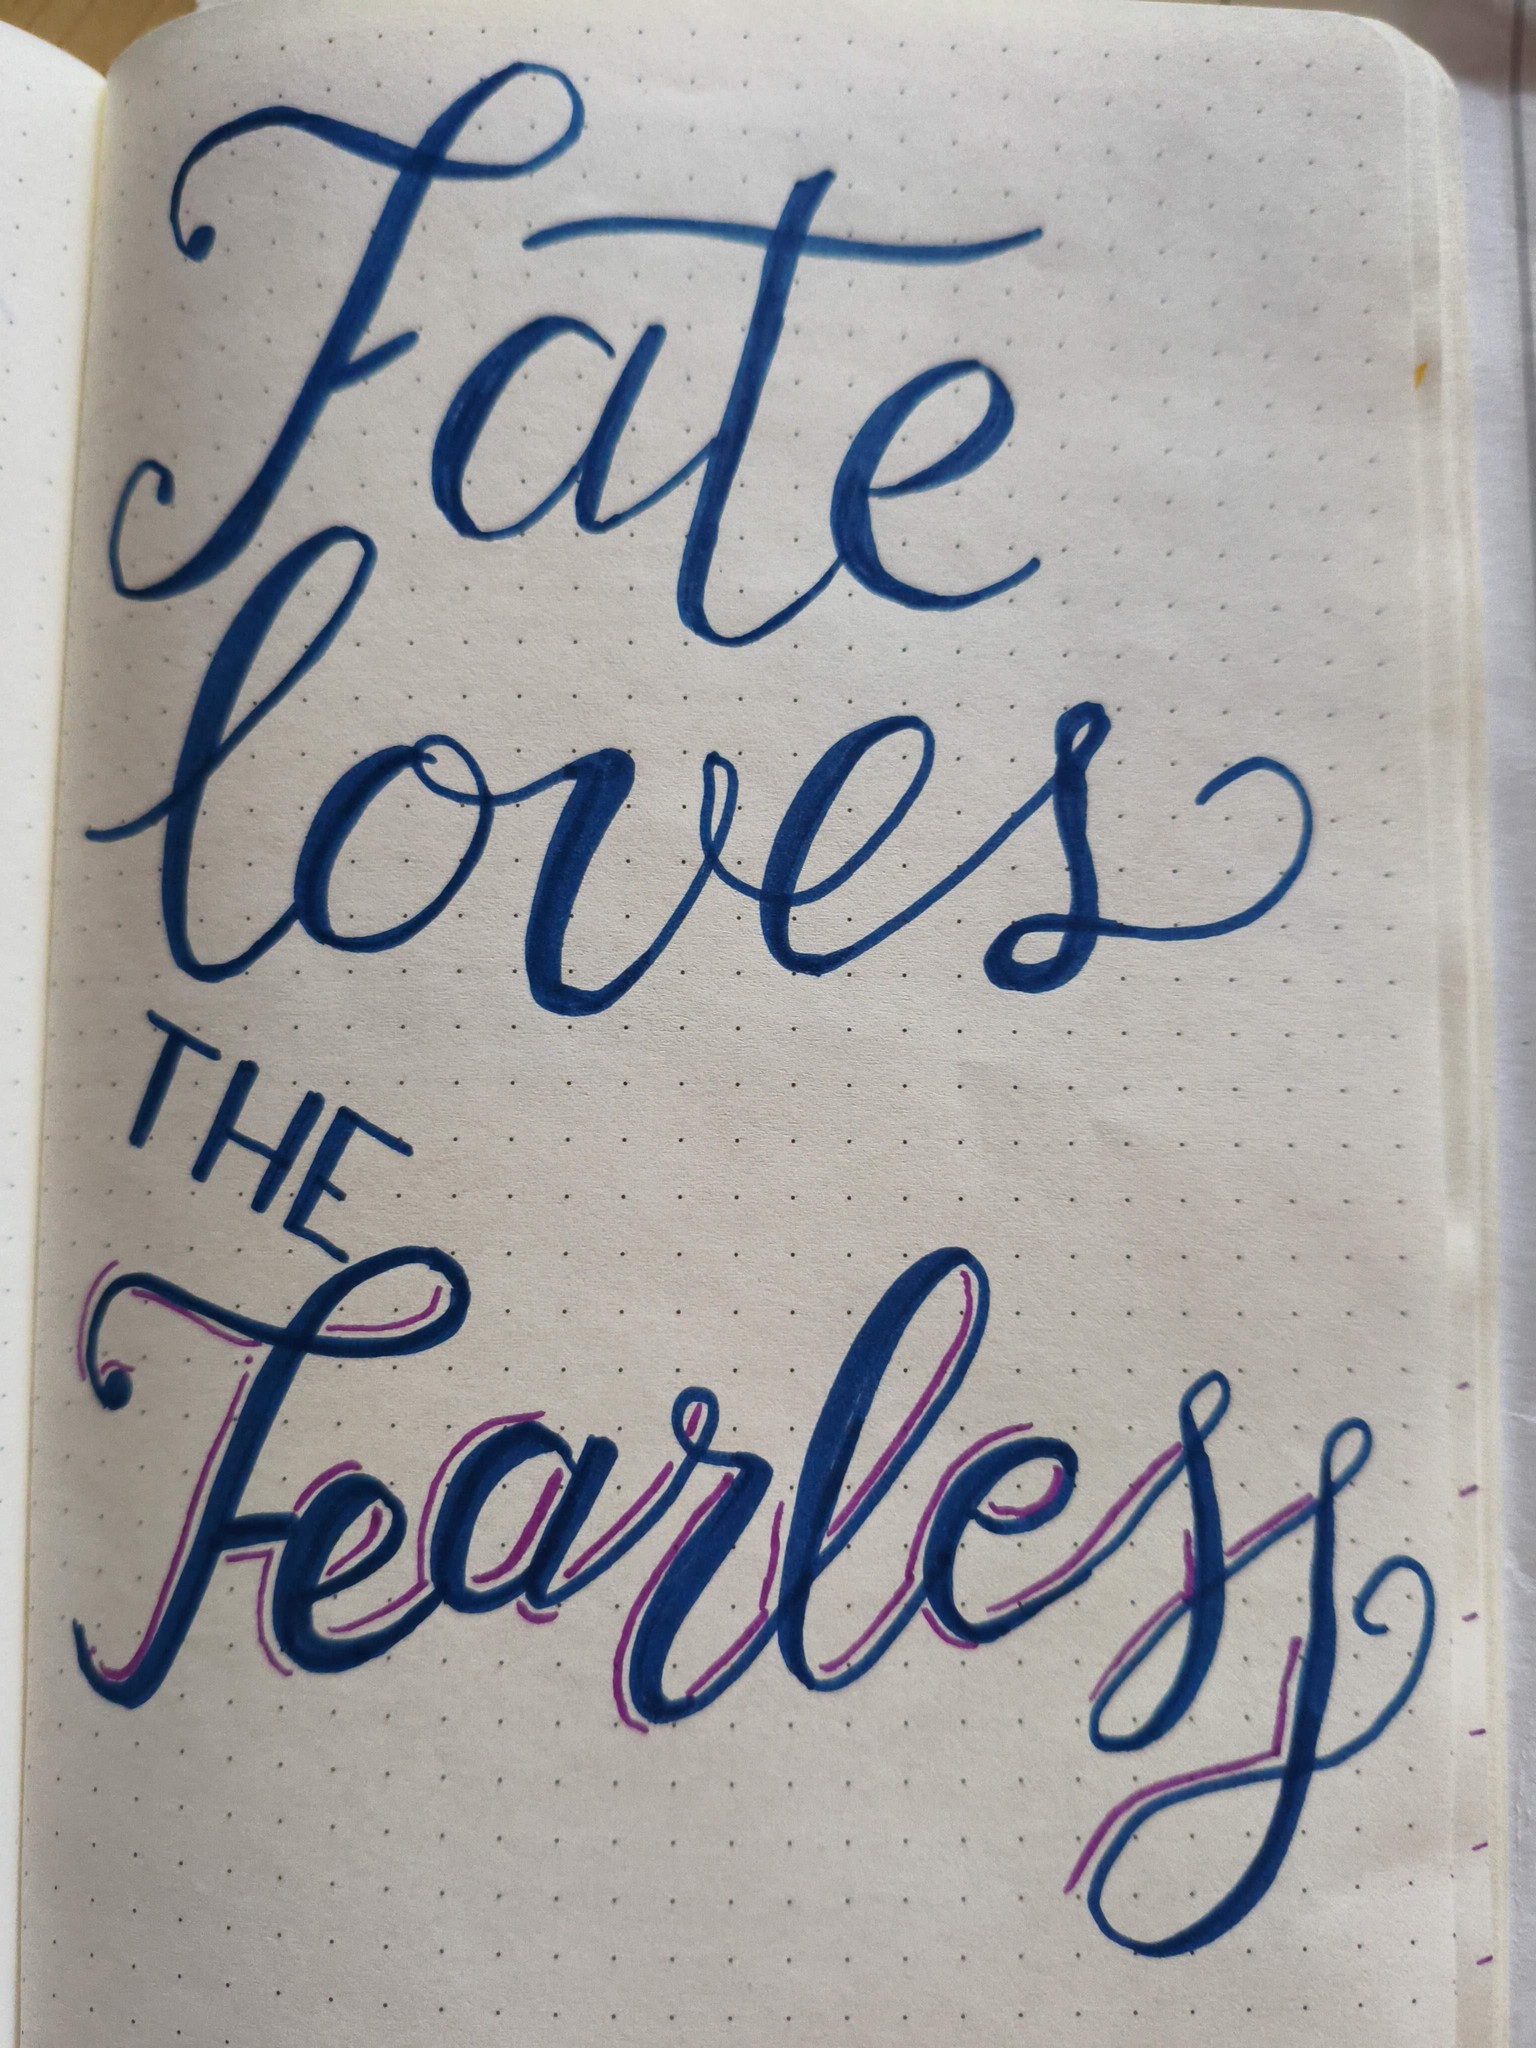 Fate
loves
THE
Fearless